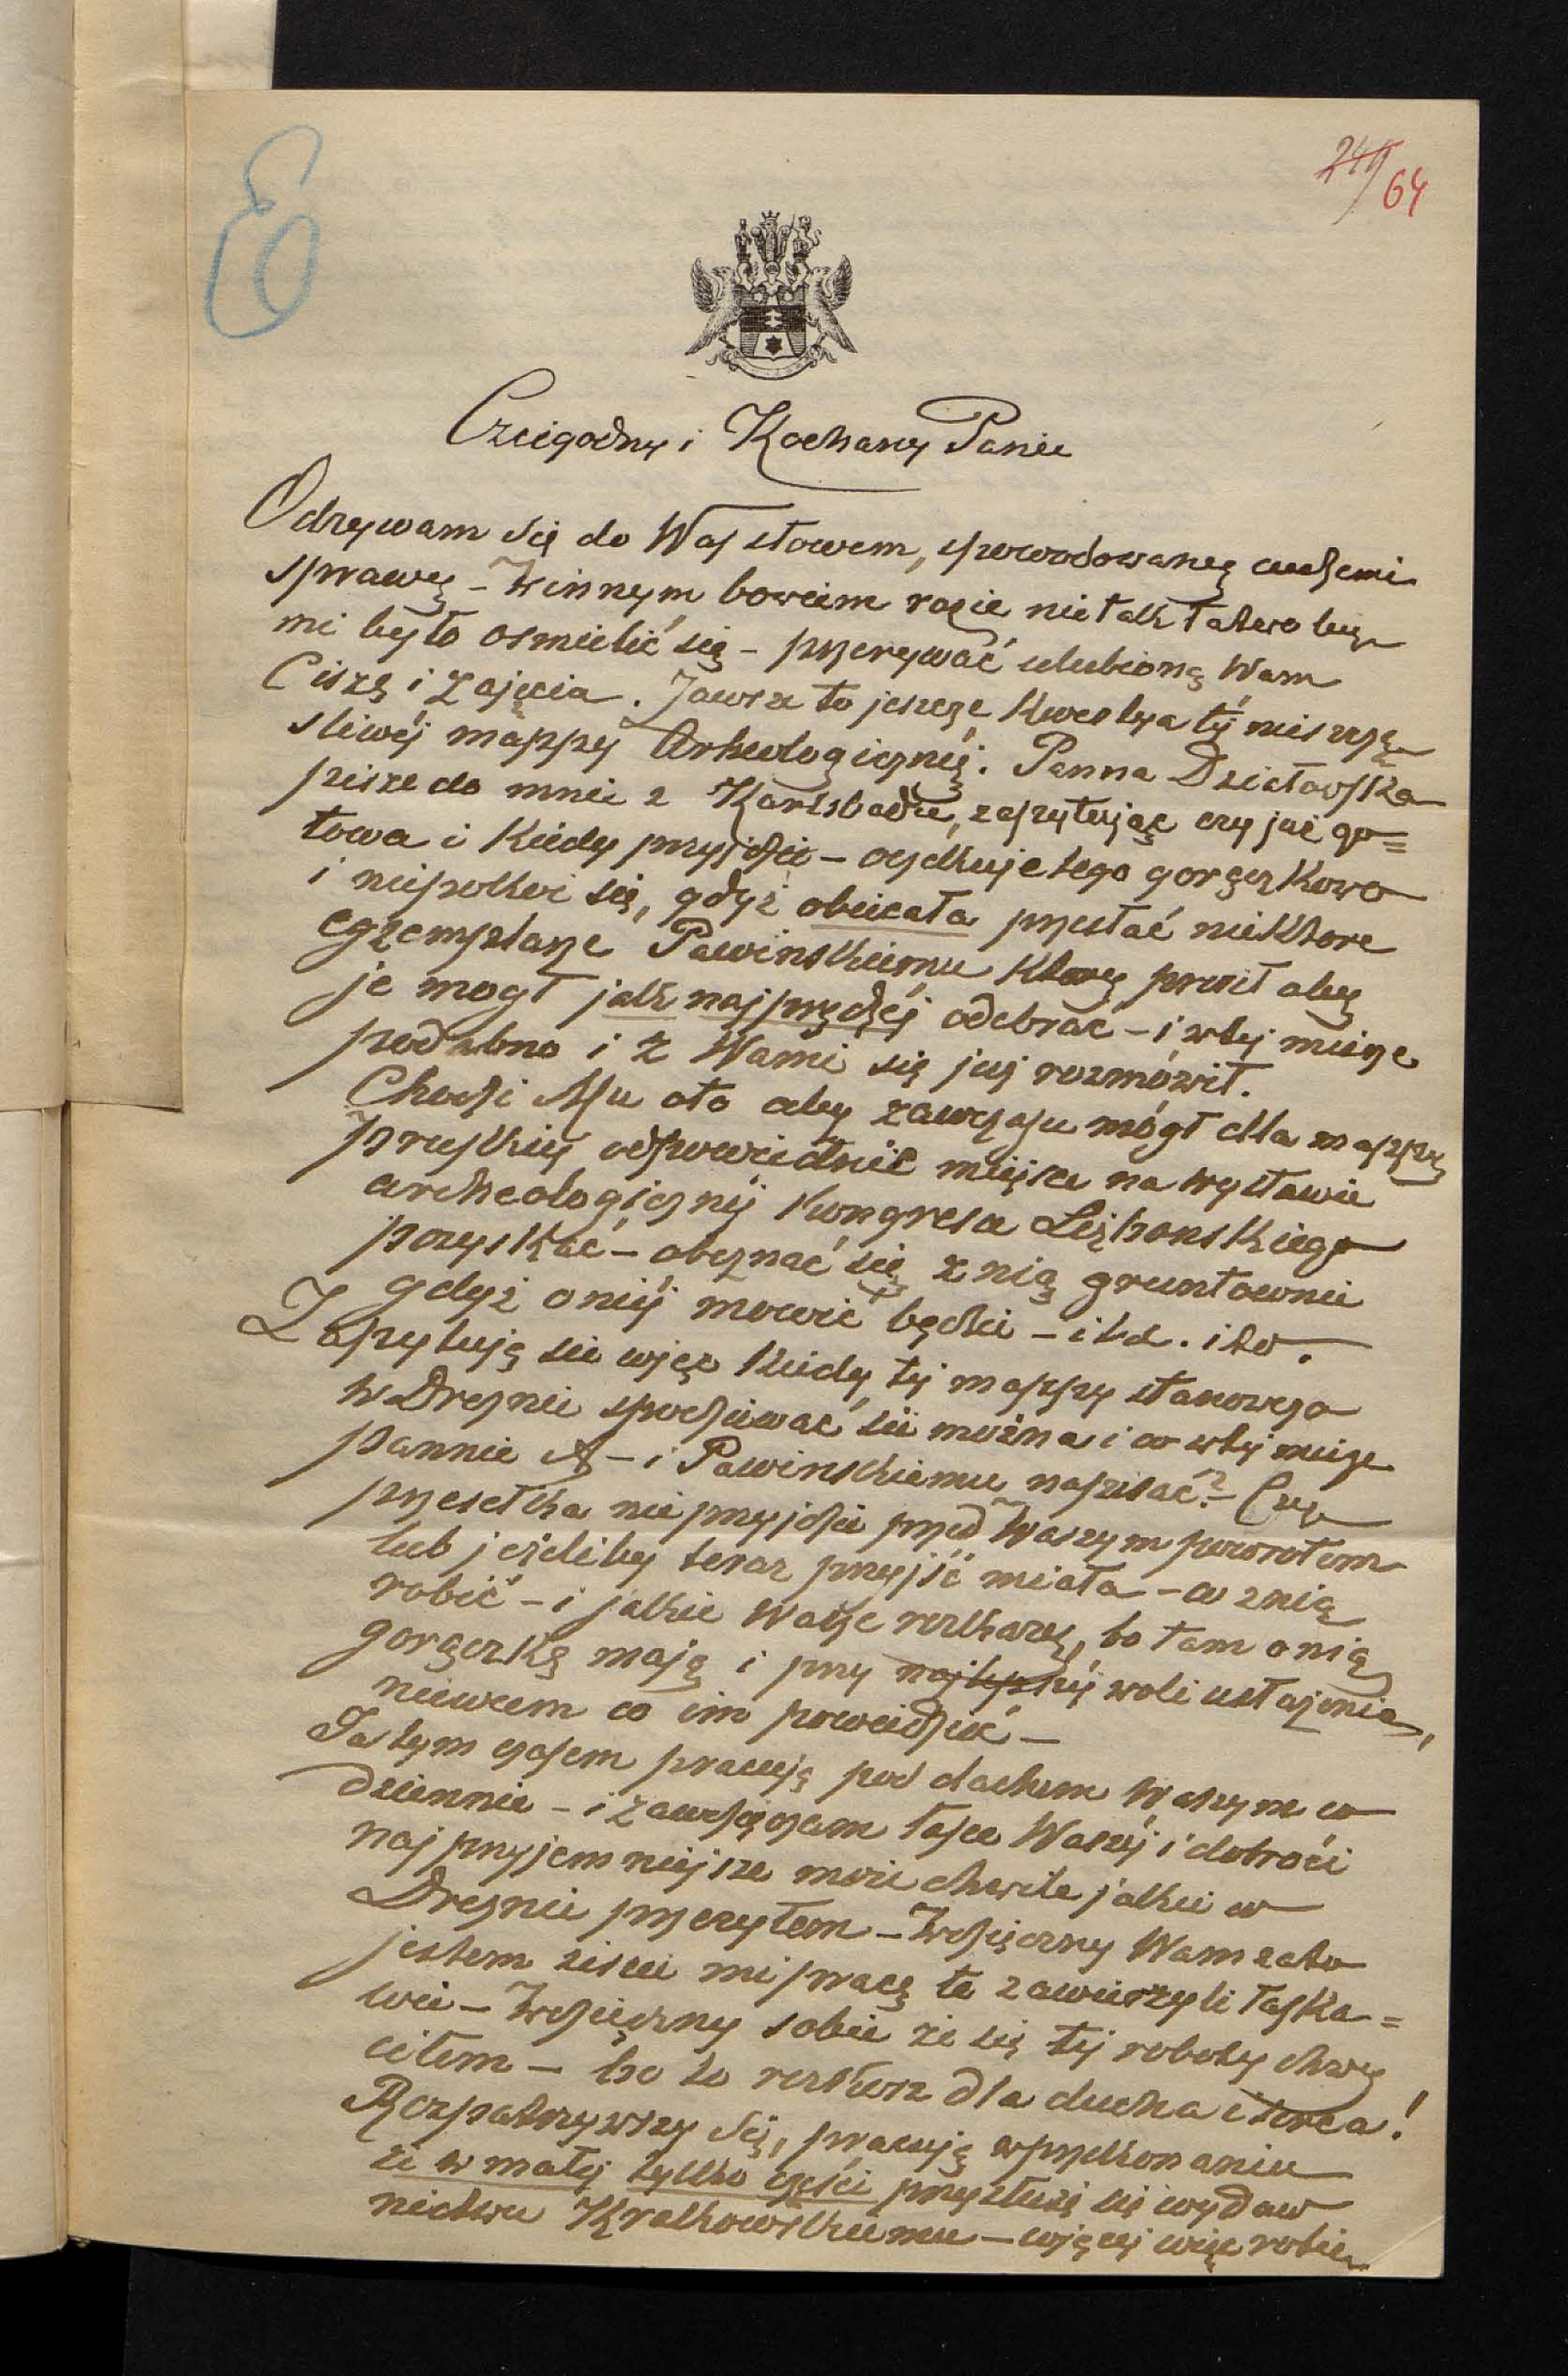 E
241/64
Czcigodny i Kochany Panie
Odzywam się do Was słowem, spowodowany cudzemi
sprawy – W innym bowiem razie nie tak łatwo by
mi było osmielić się – przerywać ulubioną Wam
Ciszę i zajęcia. Zawsze to jeszcze kwestya téj nieszczę
sliwéj mappy Arheologicznéj. Panna Działowska
pisze do mnie z Karlsbadu, zapytując czy już go=
towa i kiedy przyjdzie – oczekuje tego gorączkowo
i niepokoi się, gdyż obiecała przesłać niektóre
egzemplarze Pawińskiemu który prosił aby
je mogł jak najprędzéj odebrać – i w tej mierze
podobno i z Wami się już rozmówił.
Chodzi Mu oto aby zawczasu mógł dla mappy
pruskiéj odpowiednie miejsce na wystawie
archeologicznéj Kongresu Lizbonskiego
pozyskać – obeznać się z nią gruntownie
gdyż o niéj mowić będzie – i t.d. i to.
Zapytuję sie więc kiedy téj mappy stanowczo
w Dreznie spodziewać sie można i co w téj mierze
pannie A – i Pawinskiemu napisać? – Czy
przesełka nie przyjdzie przed Waszym powrotem
lub jeżeliby teraz przyjść miała – co z nią
robić – i jakie Wasze rozkazy, bo tam o nią
gorączkę mają i przy najlepszéj woli usłużenia,
niewiem co im powiedzieć –
Jastym czasem pracuję pod dachem Waszym co
dziennie – i zawdzięczam łasce Waszéj i dobroci
najprzyjemniejsze moie chwile jakie w
Dreznie przeżyłem – Wdzięczny Wam zato
jestem żiscie mi pracę tę zawierzyli łaska=
wie – Wdzięczny sobie że się téj roboty chwy
ciłem – bo to rozkosz dla ducha i serca!
Rozpatrzywszy się, pracuję w przekonaniu
że w małéj tylko części przysłużę się wydaw
nictwu Krakowskiemu – więcéj więc robię